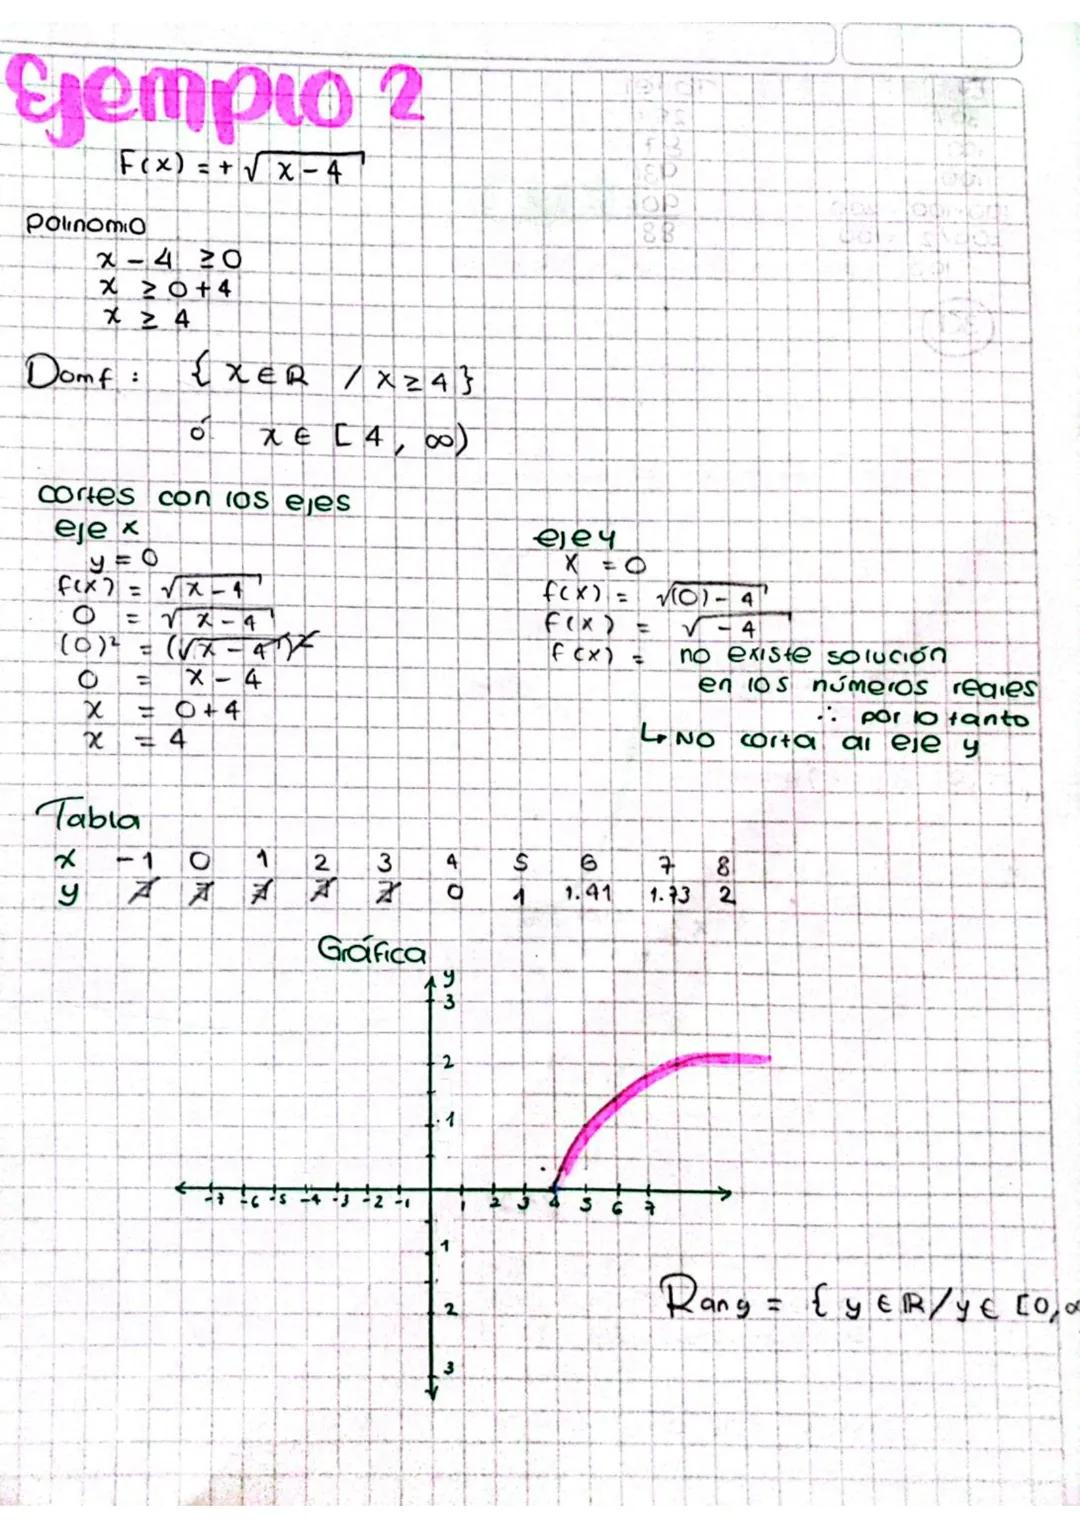 Ejemplo 2
F(x) = + √x - 4
polinomio
x - 4 ≥ 0
x ≥ 0 + 4
x ≥ 4
Domf : { x ∈ ℝ / x ≥ 4 }
ó x ∈ [ 4 , ∞)
cortes con los ejes
eje x
y = 0
f(x) = √x - 4
0 = √x - 4
(0)² = (√x - 4)²
0 = x - 4
x = 0 + 4
x = 4
eje y
x = 0
f(x) = √(0) - 4
f(x) = √- 4
f(x) = no existe solución
en los números reales
∴ por lo tanto
↳ No corta al eje y
Tabla
x -1 0 1 2 3 4 5 6 7 8
y ∄ ∄ ∄ ∄ ∄ 0 1 1.41 1.73 2
Gráfica
y
3
2
1
-7 -6 -5 -4 -3 -2 -1 1 2 3 4 5 6 7
1
2
3
Rang = { y ∈ ℝ / y ∈ [0, ∞